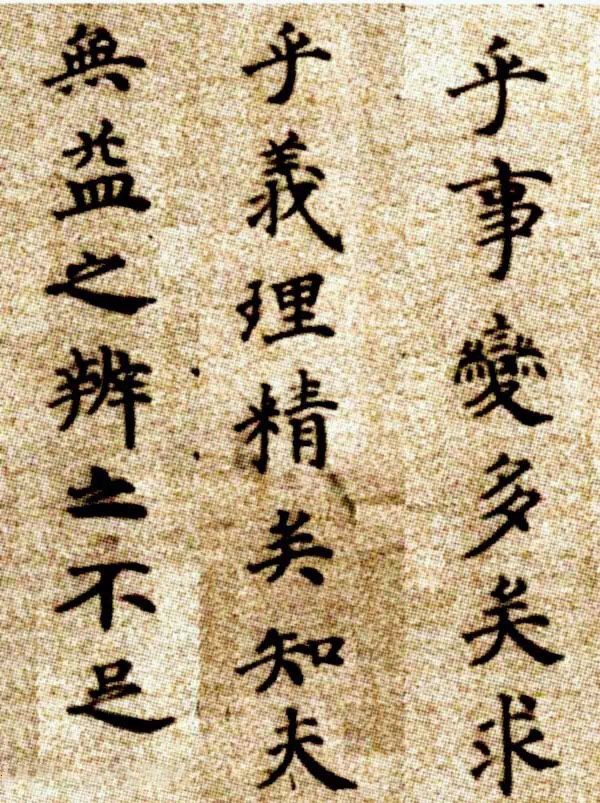 乎事變多矣求
乎義理精矣知夫
無益之辨之不足